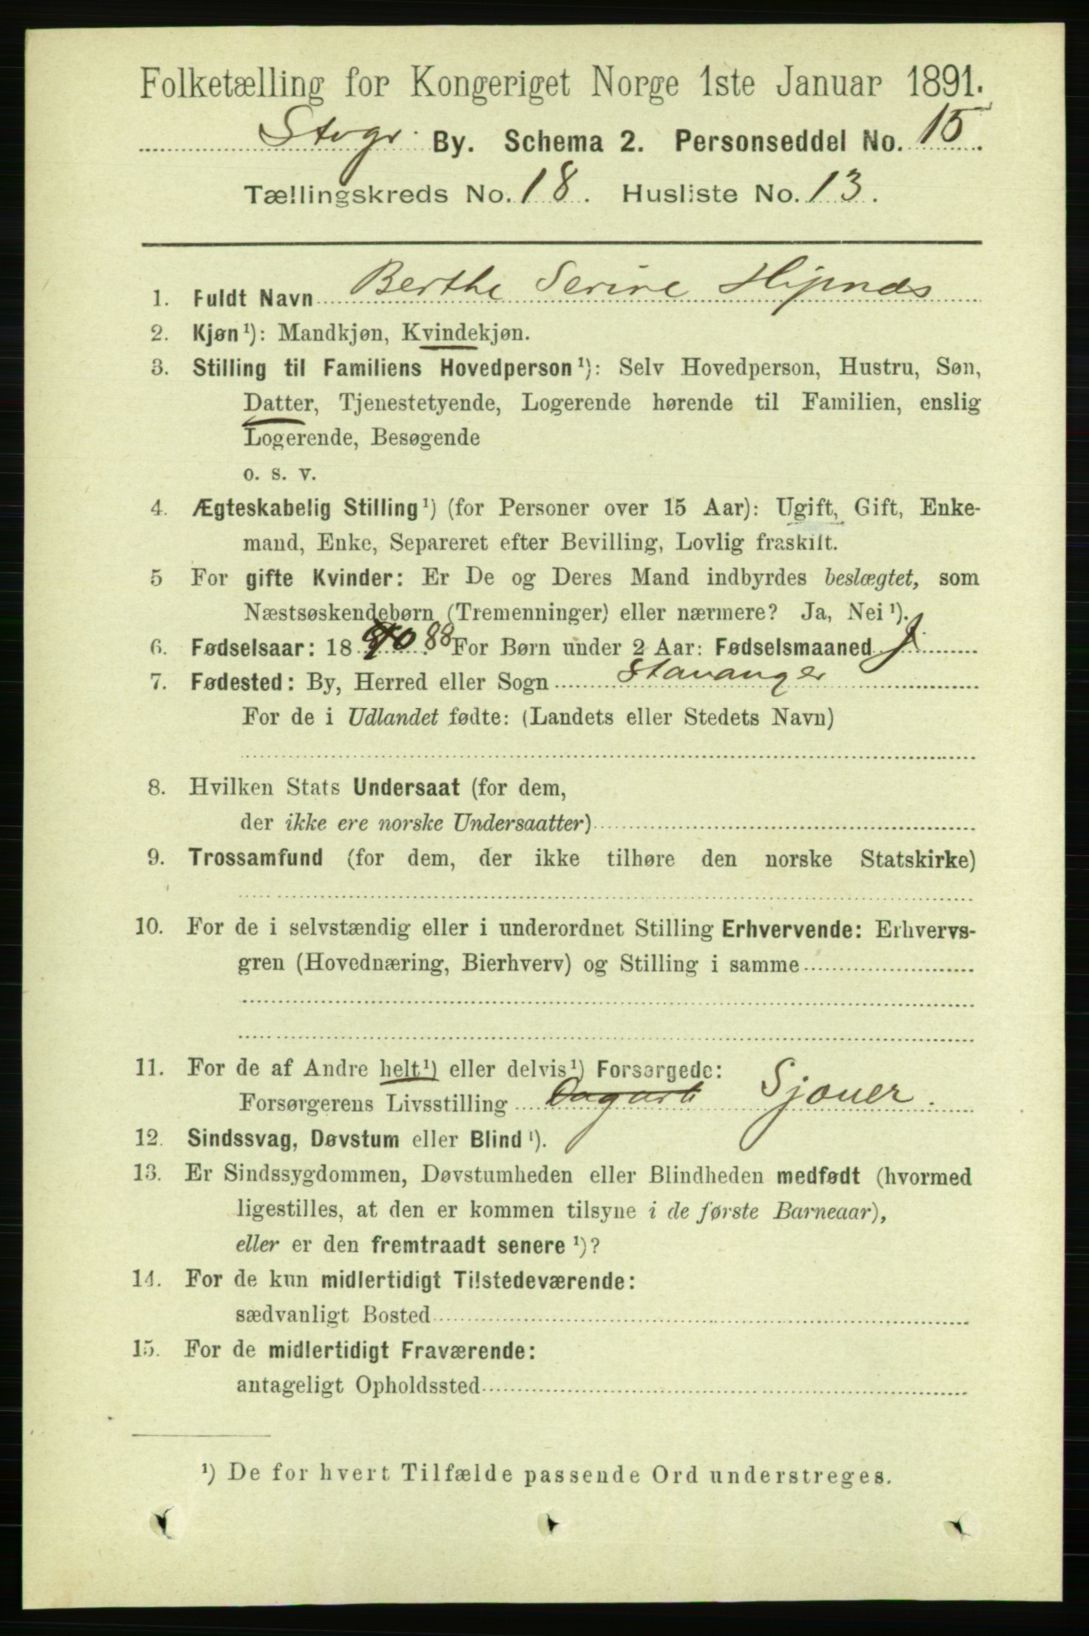 Folketælling for Kongeriget Norge 1ste Januar 1891.
Stvgr. By. Schema 2. Personseddel No. 15.
Tællingskreds No. 18. Husliste No. 13.
1. Fuldt Navn Berthe Serine
2. Kjøn ¹): Mandkjøn, Kvindekjøn.
3. Stilling til Familiens Hovedperson ¹): Selv Hovedperson, Hustru, Søn,
Datter, Tjenestetyende, Logerende hørende til Familien, enslig
Logerende, Besøgende
o. s. v.
4. Ægteskabelig Stilling ¹) (for Personer over 15 Aar): Ugift, Gift, Enke-
mand, Enke, Separeret efter Bevilling, Lovlig fraskilt.
5 For gifte Kvinder: Er De og Deres Mand indbyrdes beslægtet, som
Næstsøskendebørn (Tremenninger) eller nærmere? Ja, Nei ¹).
6. Fødselsaar: 18 88 For Børn under 2 Aar: Fødselsmaaned
7. Fødested: By, Herred eller Sogn Stavanger
For de i Udlandet fødte: (Landets eller Stedets Navn)
8. Hvilken Stats Undersaat (for dem,
der ikke ere norske Undersaatter)
9. Trossamfund (for dem, der ikke tilhøre den norske Statskirke)
10. For de i selvstændig eller i underordnet Stilling Erhvervende: Erhvervs-
gren (Hovednæring, Bierhverv) og Stilling i samme
11. For de af Andre helt ¹) eller delvis ¹) Forsørgede:
Forsørgerens Livsstilling Sjouer.
12. Sindssvag, Døvstum eller Blind ¹).
13. Er Sindssygdommen, Døvstumheden eller Blindheden medfødt (hvormed
ligestilles, at den er kommen tilsyne i de første Barneaar),
eller er den fremtraadt senere ¹)?
14. For de kun midlertidigt Tilstedeværende:
sædvanligt Bosted
15. For de midlertidigt Fraværende:
antageligt Opholdssted
¹) De for hvert Tilfælde passende Ord understreges.